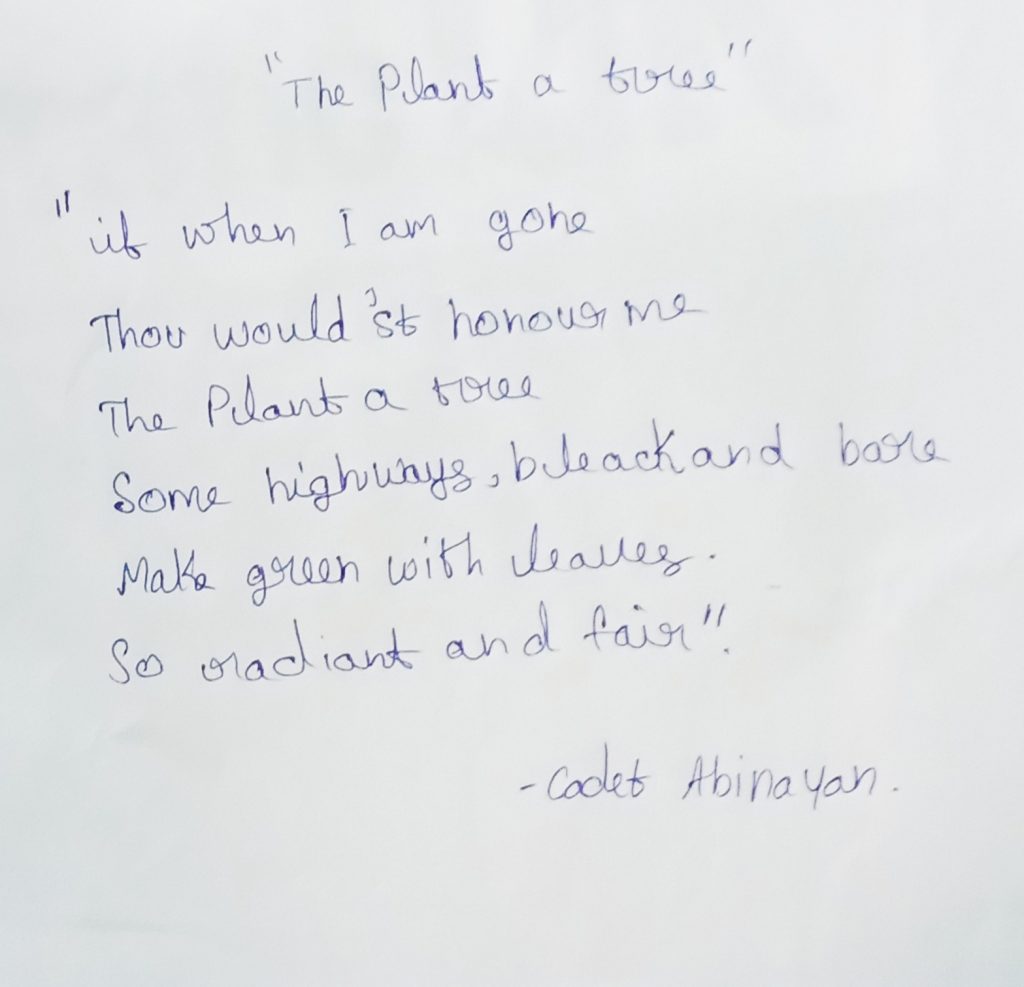 "The Plant a tree"
"if when I am gone
Thou would'st honour me
The Plant a tree
Some highways, bleack and bare
Make green with leaves.
So radiant and fair".
- Cadet Abinayan.